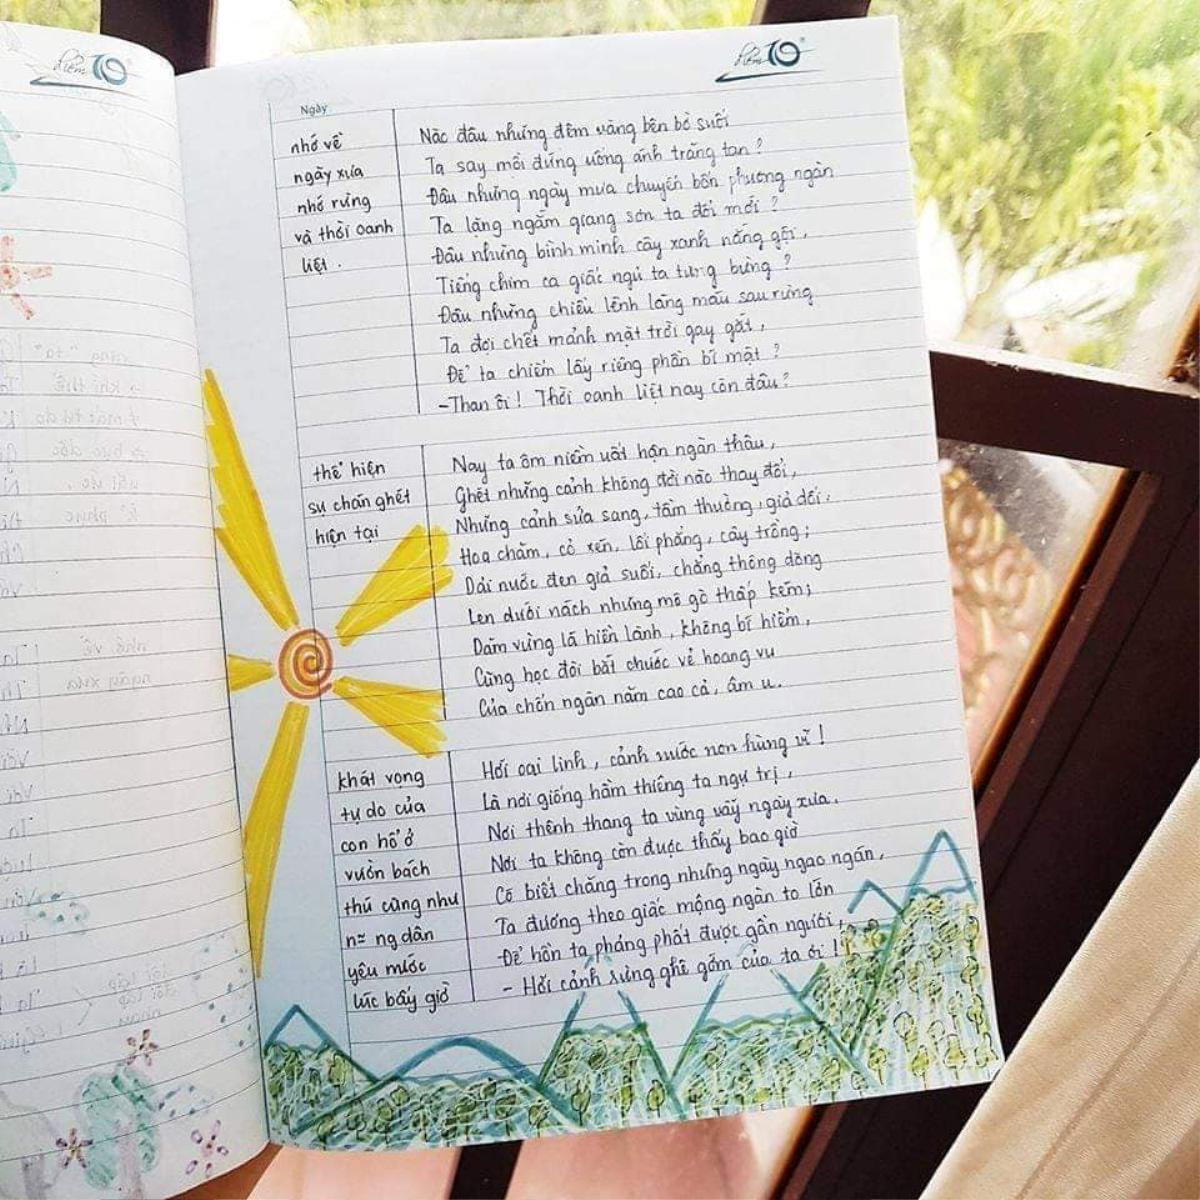 điểm 10
điểm 10
Ngày
nhớ về
ngày xưa
nhớ rừng
và thời oanh
liệt.
Nào đâu những đêm vàng bên bờ suối
Ta say mồi đứng uống ánh trăng tan?
Đâu những ngày mưa chuyển bốn phương ngàn
Ta lặng ngắm giang sơn ta đổi mới?
Đâu những bình minh cây xanh nắng gội,
Tiếng chim ca giấc ngủ ta tưng bừng?
Đâu những chiều lênh láng máu sau rừng
Ta đợi chết mảnh mặt trời gay gắt,
Để ta chiếm lấy riêng phần bí mật?
-Than ôi! Thời oanh liệt nay còn đâu?
thể hiện
sự chán ghét
hiện tại
Nay ta ôm niềm uất hận ngàn thâu,
Ghét những cảnh không đời nào thay đổi,
Những cảnh sửa sang, tầm thường, giả dối:
Hoa chăm, cỏ xén, lối phẳng, cây trồng;
Dải nước đen giả suối, chẳng thông dòng
Len dưới nách những mô gò thấp kém;
Dăm vừng lá hiền lành, không bí hiểm,
Cũng học đòi bắt chước vẻ hoang vu
Của chốn ngàn năm cao cả, âm u.
khát vọng
tự do của
con hổ ở
vườn bách
thú cũng như
n≈ ng dân
yêu nước
lúc bấy giờ
Hỡi oai linh, cảnh nước non hùng vĩ!
Là nơi giống hầm thiêng ta ngự trị,
Nơi thênh thang ta vùng vẫy ngày xưa.
Nơi ta không còn được thấy bao giờ
Có biết chăng trong những ngày ngao ngán,
Ta đương theo giấc mộng ngàn to lớn
Để hồn ta phảng phất được gần ngươi,
- Hỡi cảnh rừng ghê gớm của ta ơi!